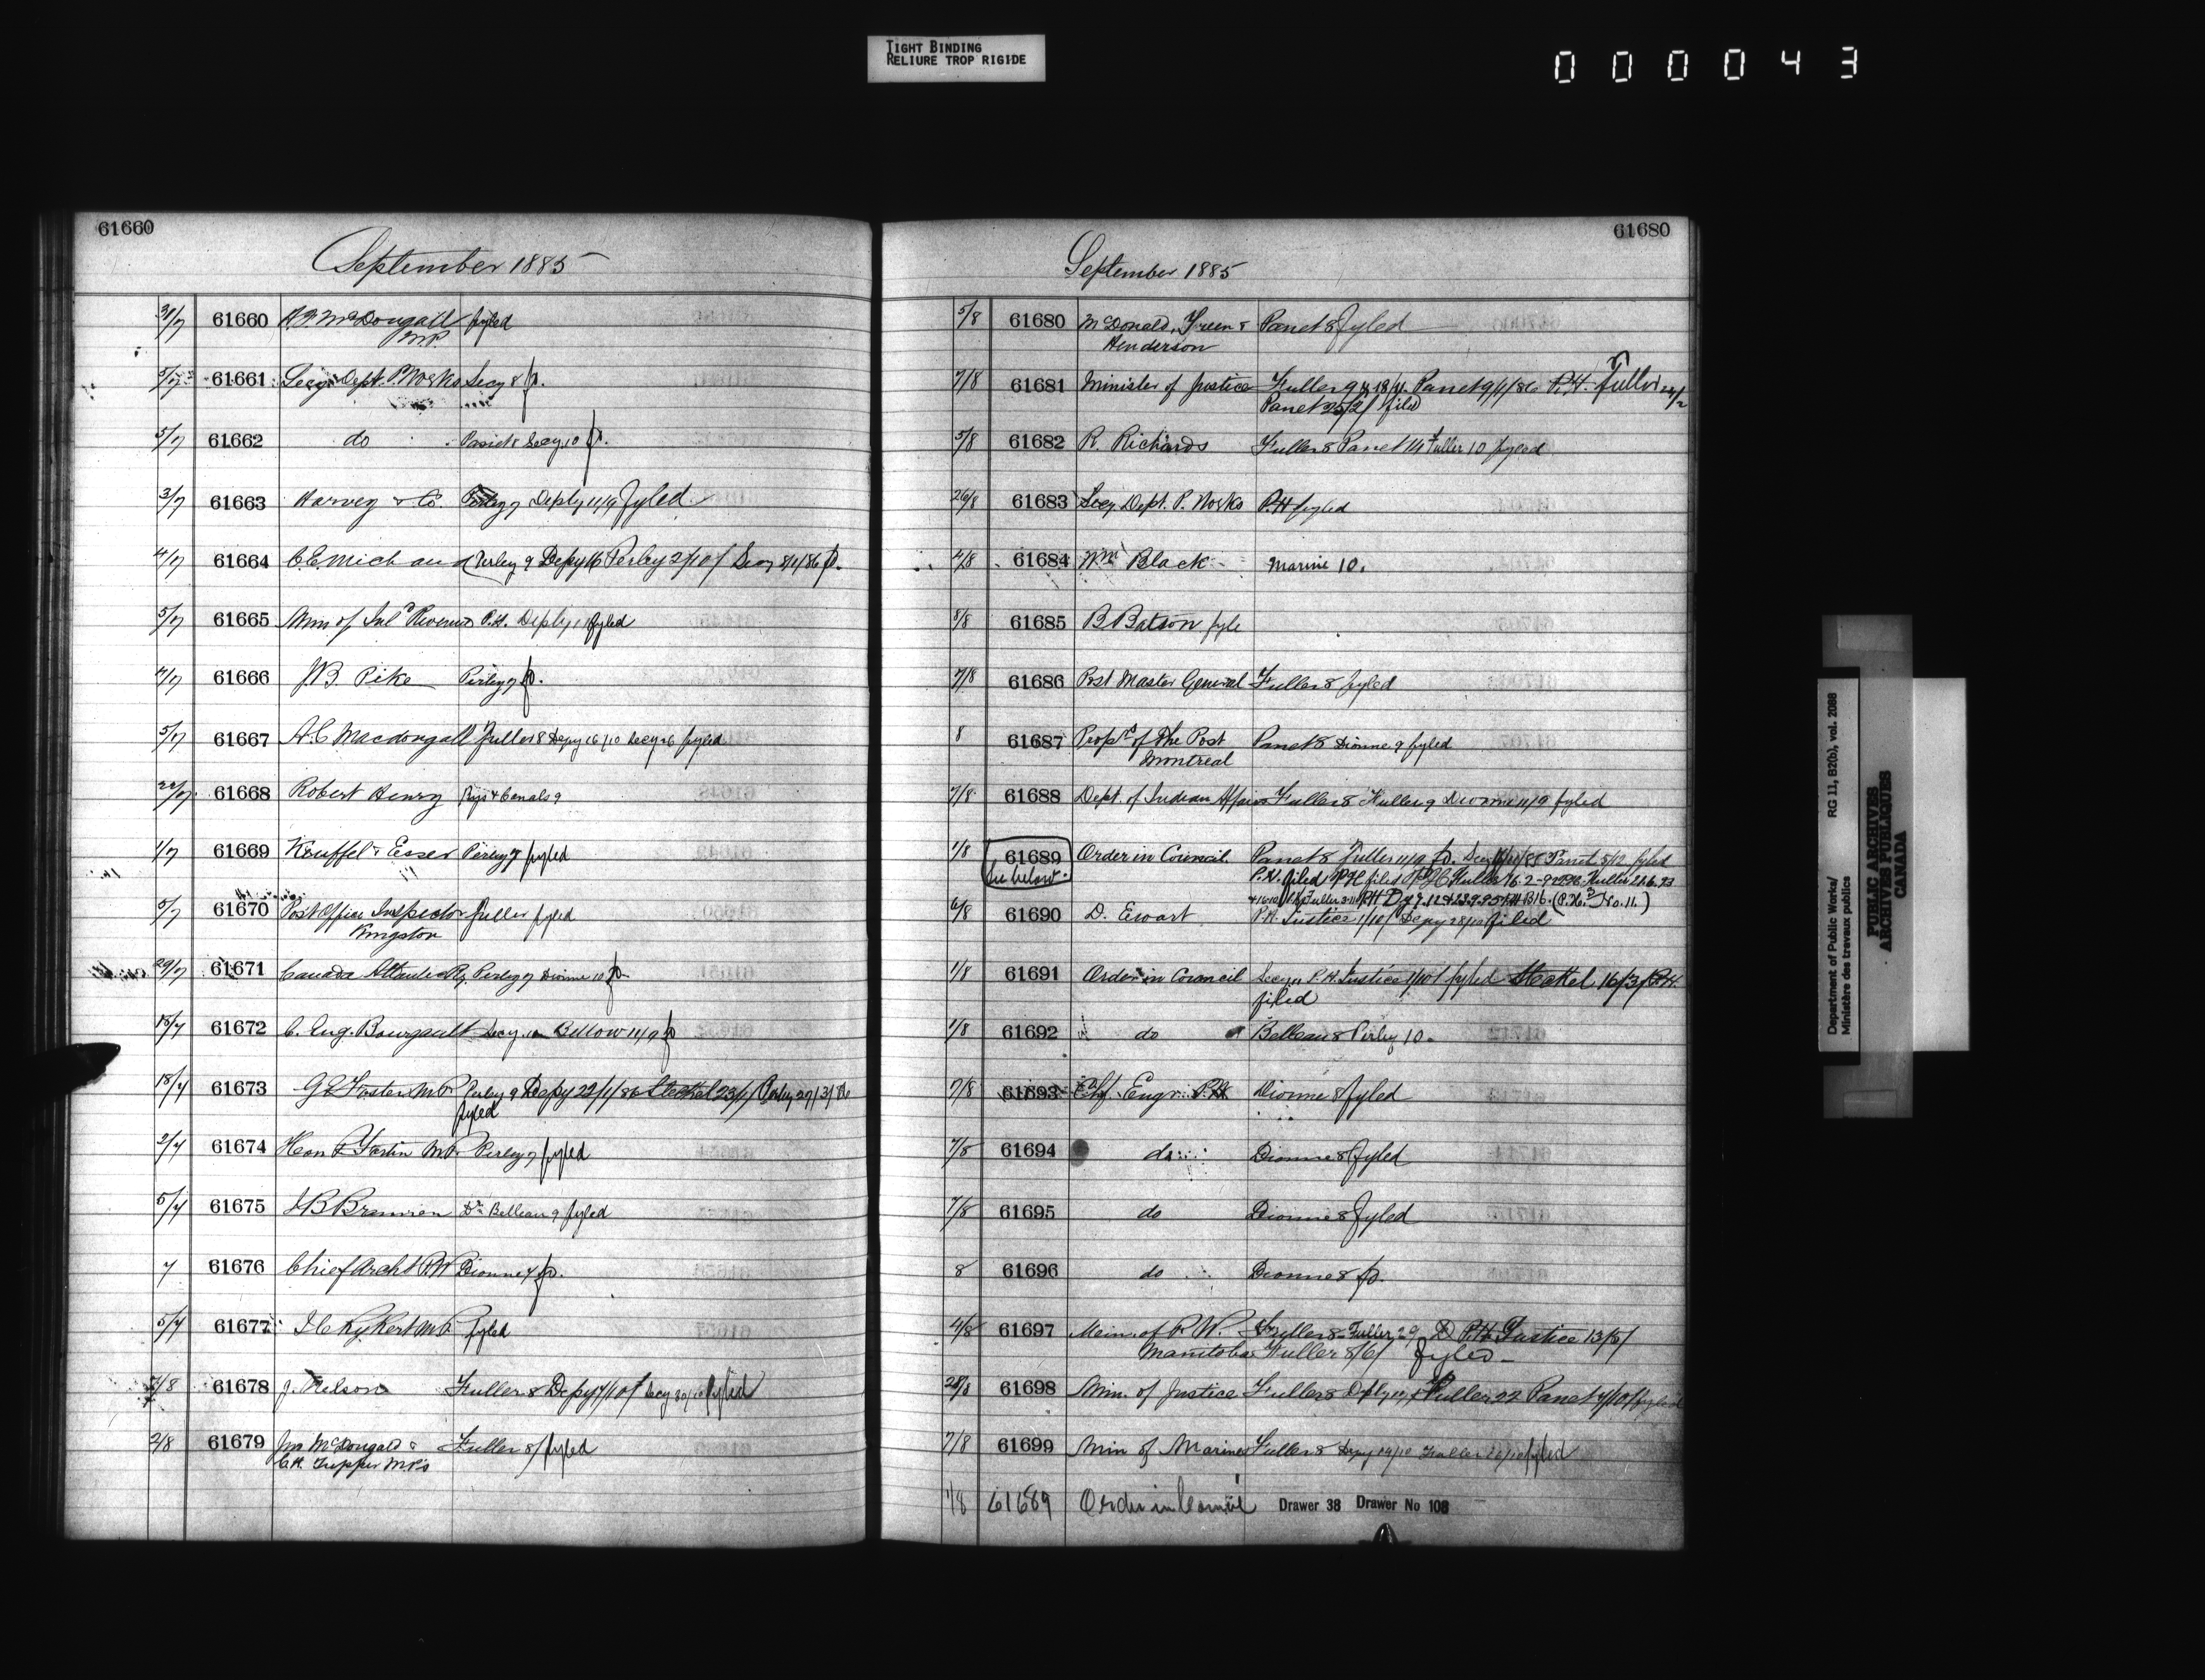 TIGHT BINDING
RELIURE TROP RIGIDE
000043
61660
September 1885
31/7 61660 A.F. McDougall fyled
M.P.
5/7 61661 Secy. Dept. P. Works Secy 8 p.
5/7 61662 do Panet 8 Secy. 10 p.
3/7 61663 Harvey & Co. Perley 7 Depty 11/9 fyled
4/7 61664 C.E. Michaud Perley 9 Depy 16 Perley 2/10/ Secy 8/1/86 p.
5/7 61665 Min of Inl. Revenue P.H. Depty 11 fyled
4/7 61666 J.B. Pike Perley 7 p.
5/7 61667 A.C. Macdongall Fuller 8 Depy 16/10 Secy 26 fyled
22/7 61668 Robert Henry Rys & Canals 9
1/7 61669 Keuffel & Esser Perley 7 fyled
5/7 61670 Post Office Inspector Fuller fyled
Kingston
29/7 61671 Canada Atlantic Ry. Perley 7 Dionne 10 p.
15/7 61672 C. Eug. Bourgault Secy. 10 Bellow 11/9 p
18/7 61673 G.E. Foster M.P. Perley 9 Depy 22/1/86 Steckel 23/1/ Perley 27/3/86
fyled
2/7 61674 Hon P. Fortin M.P. Perley 7 fyled
5/7 61675 Dr. Belleau 9 fyled
7 61676 Chief Archt P.W Dionne 7 p.
5/7 61677 J.C. Rykert M.P. fyled
61678 J. Nelson Fuller 8 Depy 7/10/ Secy 30/10 fyled
2/8 61679 Jno McDougald &
C.H. Tupper M.P's Fuller 8/ fyled
61680
September 1885
5/8 61680 McDonald, Green & Panet 8 fyled
Henderson
7/8 61681 Minister of Justice Fuller 9 Panet 9/1/86 P.H. Fuller
Panet 25/2/ filed
5/8 61682 R. Richards Fuller 8 Panet 14 Fuller 10 fyled
26/8 61683 Secy. Dept. P. Works P.H fyled
4/8 61684 Wm Black Marine 10.
8/8 61685 B Batson fyle
7/8 61686 Post Master General Fuller 8 fyled
8 61687 Props of The Post Panet 8 Dionne 9 fyled
Montreal
7/8 61688 Dept. of Indian Affairs Fuller 8 Fuller 9 Dionne 11/9 fyled
1/8 61689 Order in Council Panet 8 Fuller 11/9 p. Panet 5/12 fyled
see below P.H. filed
6/8 61690 D. Ewart P.H. Justice 1/10/ Depy 28/10 filed
1/8 61691 Order in Council Secy 11 P.H. Justice 1/10/ fyled Steckel 16/3/ P.H.
filed
1/8 61692 do Belleau 8 Perley 10.
7/8 61693 Chf. Engr. P.W Dionne 8 fyled
7/8 61694 do Dionne 8 fyled
7/8 61695 do Dionne 8 fyled
8 61696 do Dionne 8 p.
4/8 61697 Min. of P.W. Fuller 8 Fuller 29 P.H. Justice 13/5/
Manitoba Fuller 8/6/ fyled
28/8 61698 Min. of Justice Fuller 8 Fuller 22 Panet 7/10/ fyled
7/8 61699 Min of Marine Fuller 8 Depy 14/10 Fuller fyled
1/8 61689 Order in Council Drawer 38 Drawer No 108
Department of Public Works/
Ministère des travaux publics
RG 11, B2(b), vol. 2088
PUBLIC ARCHIVES
ARCHIVES PUBLIQUES
CANADA